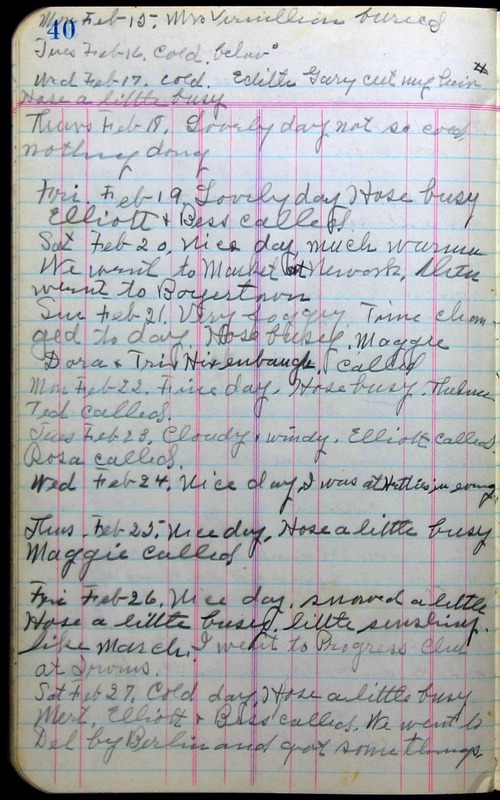 40
Mon Feb 15. Mrs Vermillion buried
Tues Feb 16. Cold. below °
Wed Feb 17. cold. Edith Gary cut my hair
Hose a little busy
Thurs Feb 18. Lovely day not so cold,
nothing doing
Fri. Feb 19. Lovely day, Hose busy
Elliott + Bess called.
Sat Feb 20. Nice day, much warmer
We went to Market at Newark,
went to Boyertown
Sun Feb 21. Very foggy Time chan-
ged to day. Hose busy. Maggie
Dora + Hixenbaugh, called
Mon Feb 22. Fine day. Hose busy. Thelma
Ted called.
Tues Feb 23, Cloudy, windy. Elliott called.
Rosa called.
Wed Feb 24. Nice day, I was at Hetties, in eveng
Thurs. Feb 25. Nice day, Hose a little busy
Maggie called
Fri Feb 26. Nice day. snowed a little
Hose a little busy. little sunshiny.
like March. I went to Progress Club
at Irwins.
Sat Feb 27. Cold day, Hose a little busy
Mert, Elliott + Bess called. We went to
Del by Berlin and got some things.